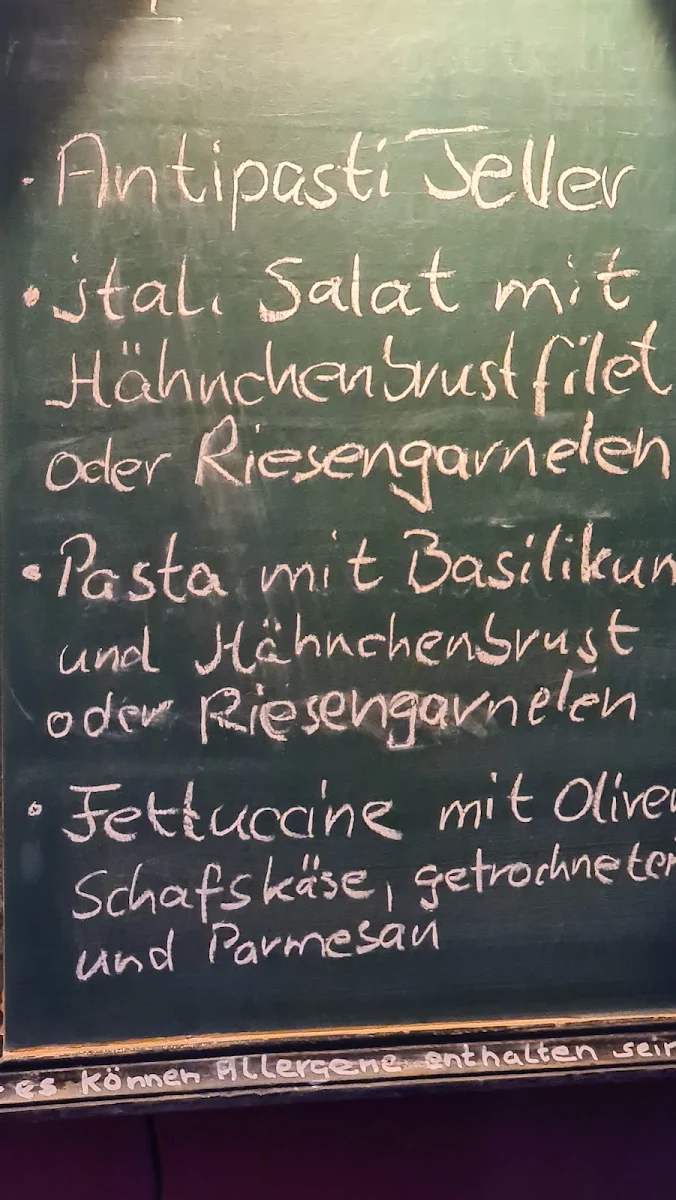 · Antipasti Teller
· ital. Salat mit
Hähnchenbrustfilet
oder Riesengarnelen
· Pasta mit Basilikum
und Hähnchenbrust
oder Riesengarnelen
· Fettuccine mit Oliven
Schafskäse, getrockneten
und Parmesan
- es können Allergene enthalten sein